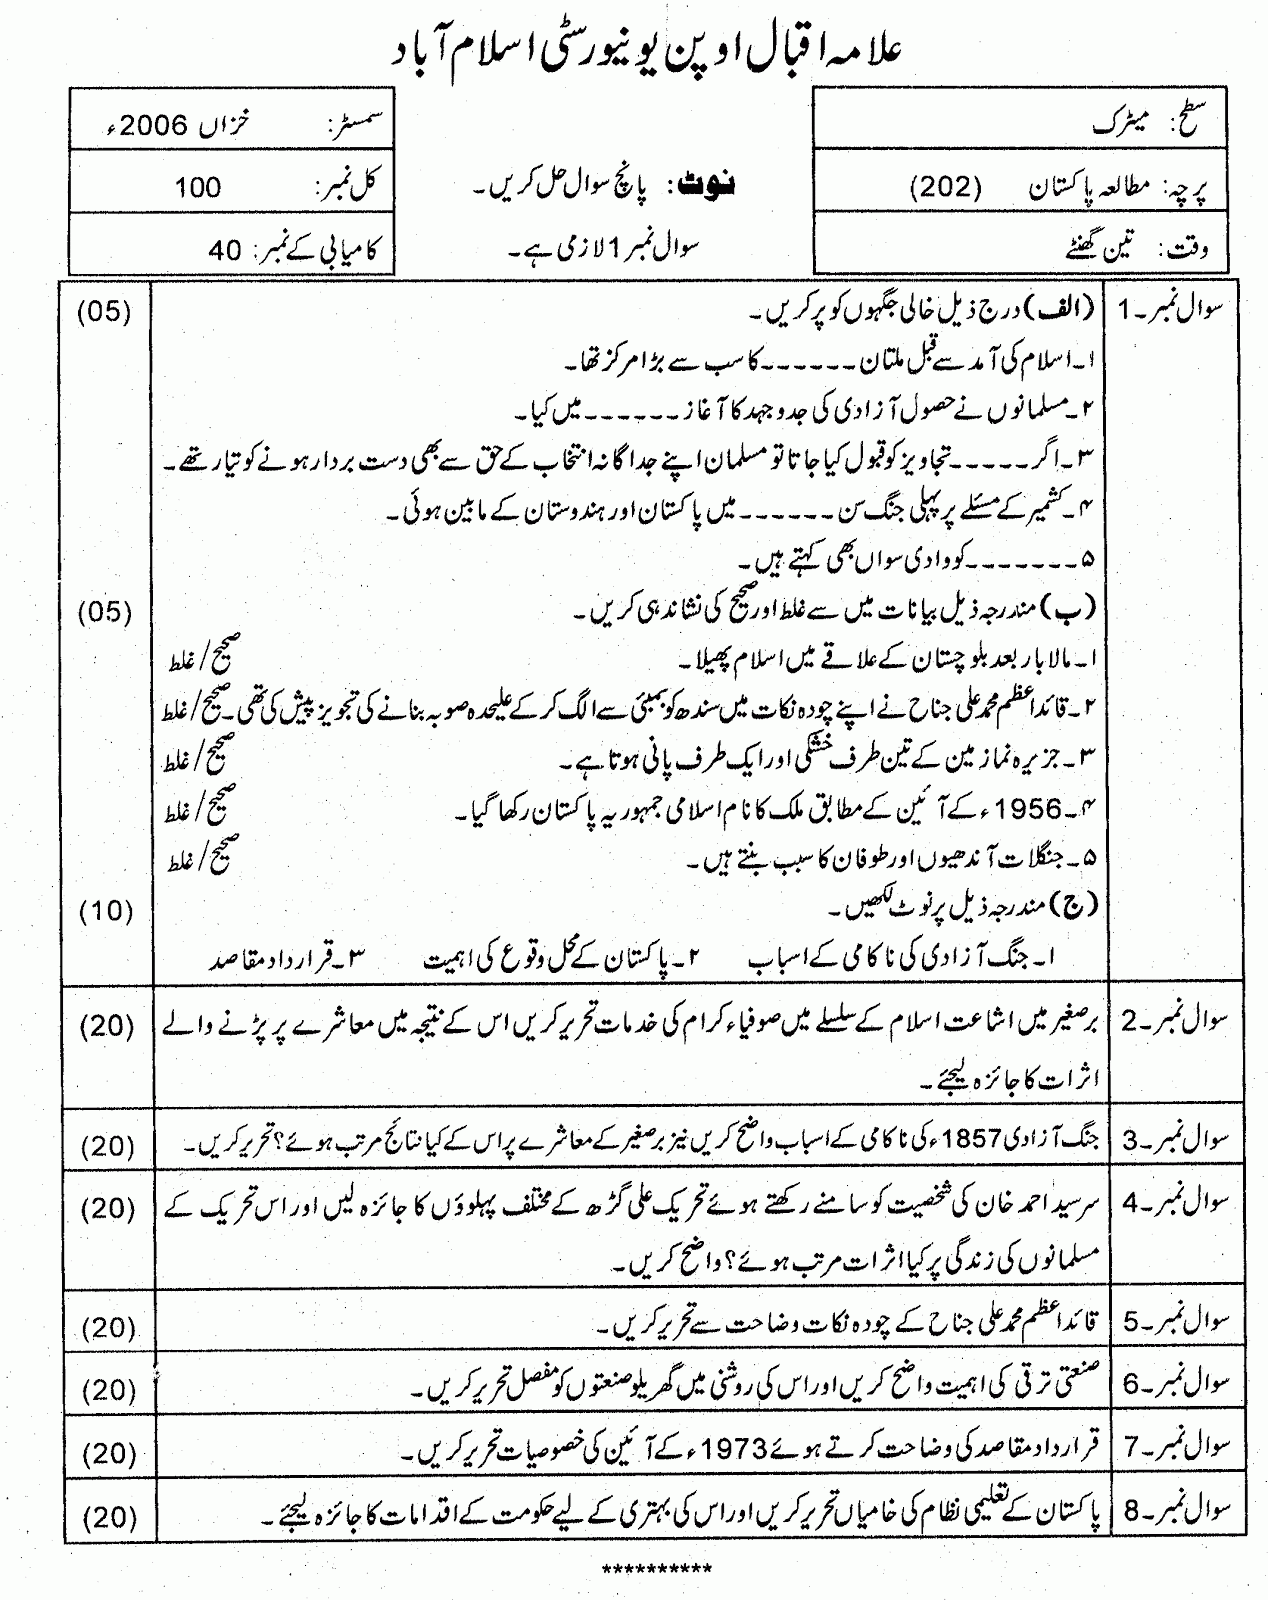 علامہ اقبال اوپن یونیورسٹی اسلام آباد
سطح: میٹرک
سمسٹر: خزاں 2006ء
پرچہ: مطالعہ پاکستان (202)
نوٹ: پانچ سوال حل کریں۔
کل نمبر: 100
وقت: تین گھنٹے
سوال نمبر 1 لازمی ہے۔
کامیابی کے نمبر: 40
سوال نمبر۔1 (الف) درج ذیل خالی جگہوں کو پر کریں۔ (05)
۱۔ اسلام کی آمد سے قبل ملتان ------ کا سب سے بڑا مرکز تھا۔
۲۔ مسلمانوں نے حصول آزادی کی جدوجہد کا آغاز ------ میں کیا۔
۳۔ اگر ----- تجاویز کو قبول کیا جاتا تو مسلمان اپنے جداگانہ انتخاب کے حق سے بھی دست بردار ہونے کو تیار تھے۔
۴۔ کشمیر کے مسئلے پر پہلی جنگ سن ------ میں پاکستان اور ہندوستان کے مابین ہوئی۔
۵۔ ------- کو وادی سواں بھی کہتے ہیں۔
(ب) مندرجہ ذیل بیانات میں سے غلط اور صحیح کی نشاندہی کریں۔ (05)
۱۔ مالابار بعد بلوچستان کے علاقے میں اسلام پھیلا۔ صحیح/غلط
۲۔ قائداعظم محمد علی جناح نے اپنے چودہ نکات میں سندھ کو بمبئی سے الگ کر کے علیحدہ صوبہ بنانے کی تجویز پیش کی تھی۔ صحیح/غلط
۳۔ جزیرہ نما زمین کے تین طرف خشکی اور ایک طرف پانی ہوتا ہے۔ صحیح/غلط
۴۔ 1956ء کے آئین کے مطابق ملک کا نام اسلامی جمہوریہ پاکستان رکھا گیا۔ صحیح/غلط
۵۔ جنگلات آندھیوں اور طوفان کا سبب بنتے ہیں۔ صحیح/غلط
(ج) مندرجہ ذیل پر نوٹ لکھیں۔ (10)
۱۔ جنگ آزادی کی ناکامی کے اسباب ۲۔ پاکستان کے محل وقوع کی اہمیت ۳۔ قرارداد مقاصد
سوال نمبر۔2 برصغیر میں اشاعت اسلام کے سلسلے میں صوفیاء کرام کی خدمات تحریر کریں اس کے نتیجہ میں معاشرے پر پڑنے والے (20)
اثرات کا جائزہ لیجئے۔
سوال نمبر۔3 جنگ آزادی 1857ء کی ناکامی کے اسباب واضح کریں نیز برصغیر کے معاشرے پر اس کے کیا نتائج مرتب ہوئے؟ تحریر کریں۔ (20)
سوال نمبر۔4 سر سید احمد خان کی شخصیت کو سامنے رکھتے ہوئے تحریک علی گڑھ کے مختلف پہلوؤں کا جائزہ لیں اور اس تحریک کے (20)
مسلمانوں کی زندگی پر کیا اثرات مرتب ہوئے؟ واضح کریں۔
سوال نمبر۔5 قائداعظم محمد علی جناح کے چودہ نکات وضاحت سے تحریر کریں۔ (20)
سوال نمبر۔6 صنعتی ترقی کی اہمیت واضح کریں اور اس کی روشنی میں گھریلو صنعتوں کو مفصل تحریر کریں۔ (20)
سوال نمبر۔7 قرارداد مقاصد کی وضاحت کرتے ہوئے 1973ء کے آئین کی خصوصیات تحریر کریں۔ (20)
سوال نمبر۔8 پاکستان کے تعلیمی نظام کی خامیاں تحریر کریں اور اس کی بہتری کے لیے حکومت کے اقدامات کا جائزہ لیجئے۔ (20)
**********